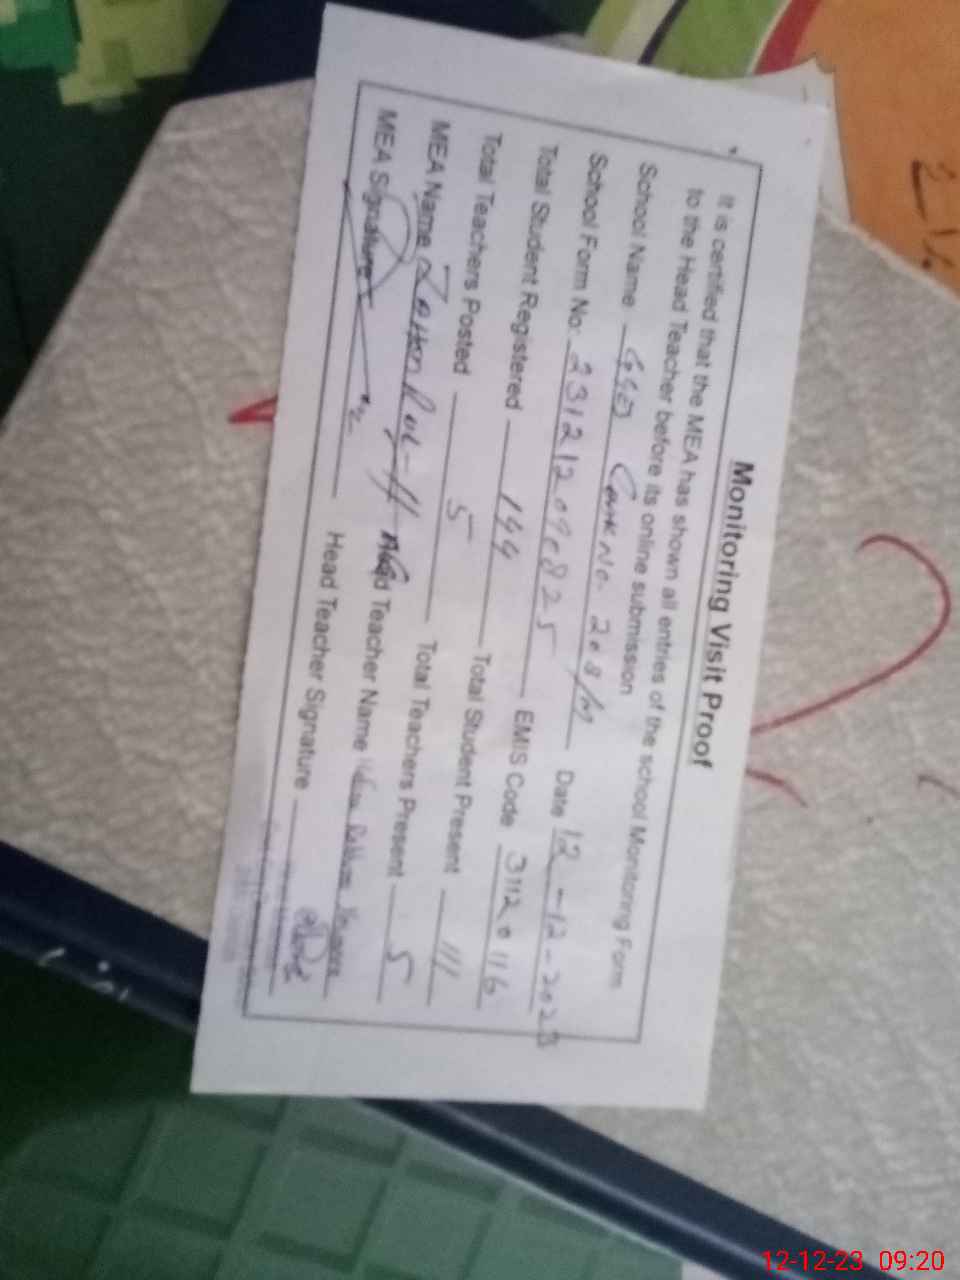 Monitoring Visit Proof
It is certified that the MEA has shown all entries of the school Monitoring Form
to the Head Teacher before its online submission
School Name Chak No. 203/M Date 12-12-2023
School Form No: EMIS Code 31120116
Total Student Registered 144 Total Student Present 111
Total Teachers Posted 5 Total Teachers Present 5
MEA Name Teacher Name
MEA Signature Head Teacher Signature
21%
12-12-23 09:20